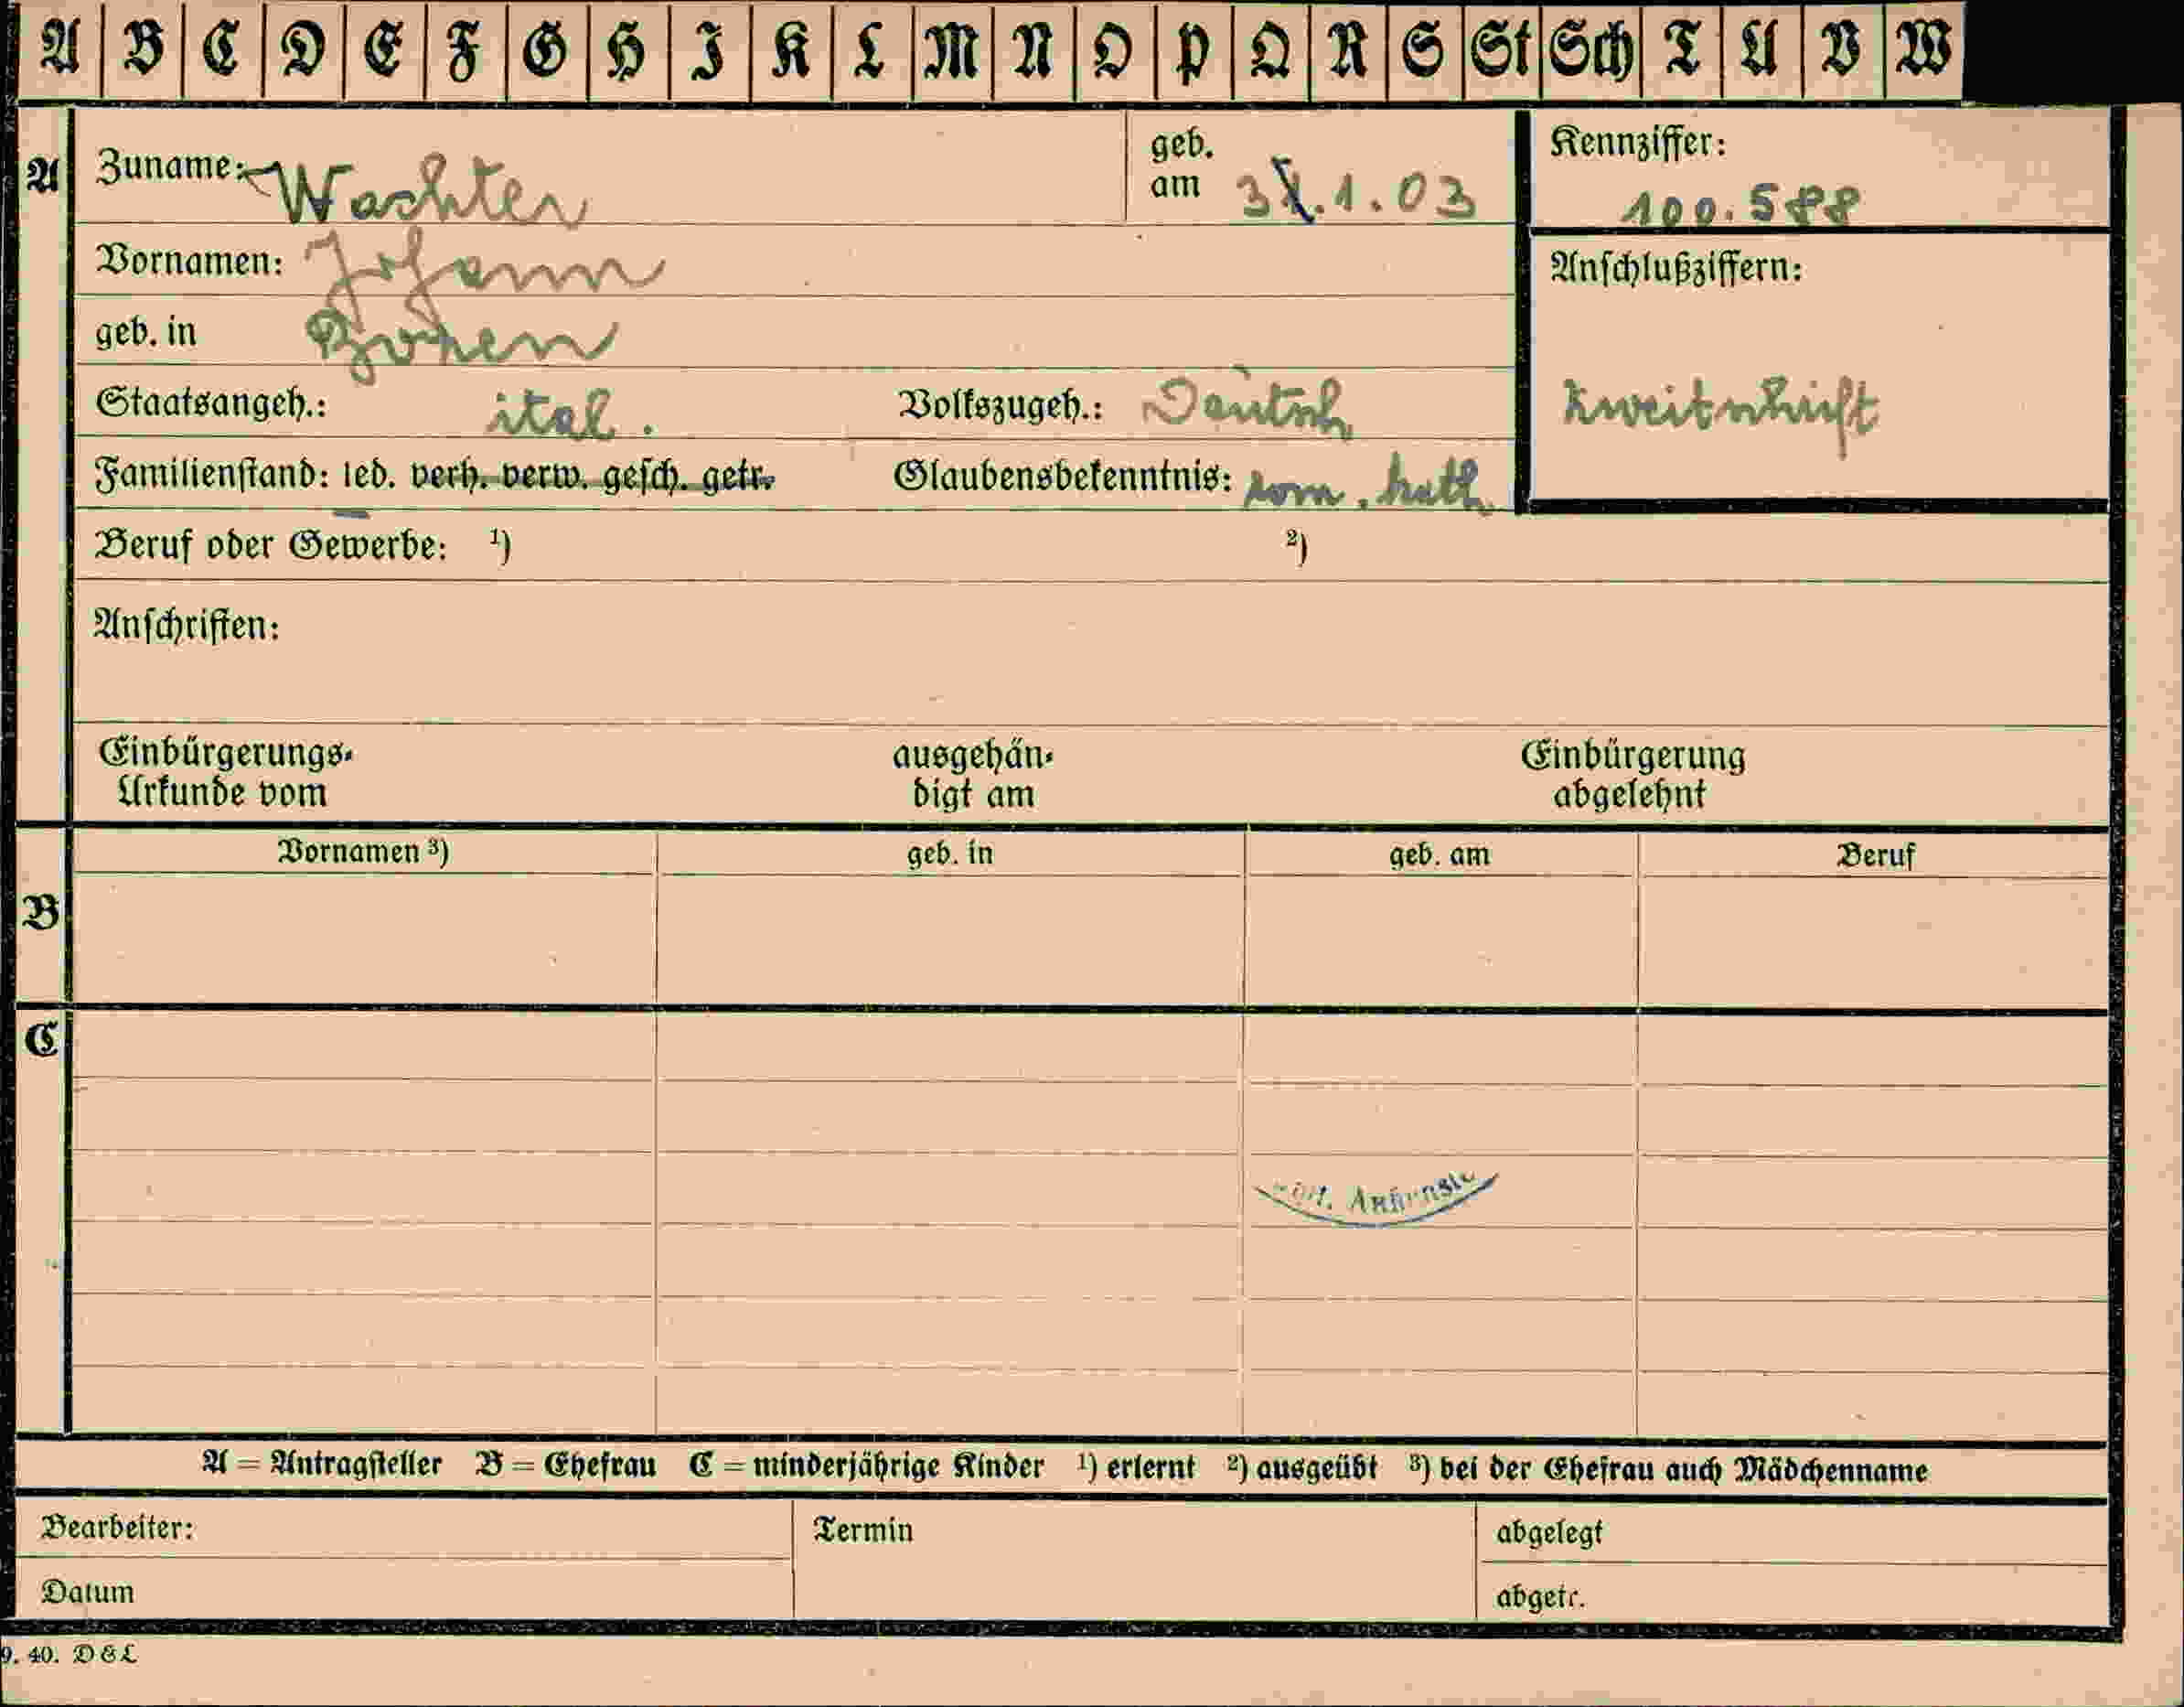 A B C D E F G H I K L M N O P Q R S St Sch T U V W
A Zuname: Wachter geb. am 31.1.03 Kennziffer: 100.588
Vornamen: Johann
geb. in Bozen
Anschlußziffern:
Zweitschrift
Staatsangeh.: ital. Volkszugeh.: Deutsch
Familienstand: led. verh. verw. gesch. getr. Glaubensbekenntnis: röm. kath
Beruf oder Gewerbe: ¹) ²)
Anschriften:
Einbürgerungs- ausgehän- Einbürgerung
Urkunde vom digt am abgelehnt
Vornamen ³) geb. in geb. am Beruf
B
C
A = Antragsteller B = Ehefrau C = minderjährige Kinder ¹) erlernt ²) ausgeübt ³) bei der Ehefrau auch Mädchenname
Bearbeiter: Termin abgelegt
Datum abgetr.
9. 40. D & L